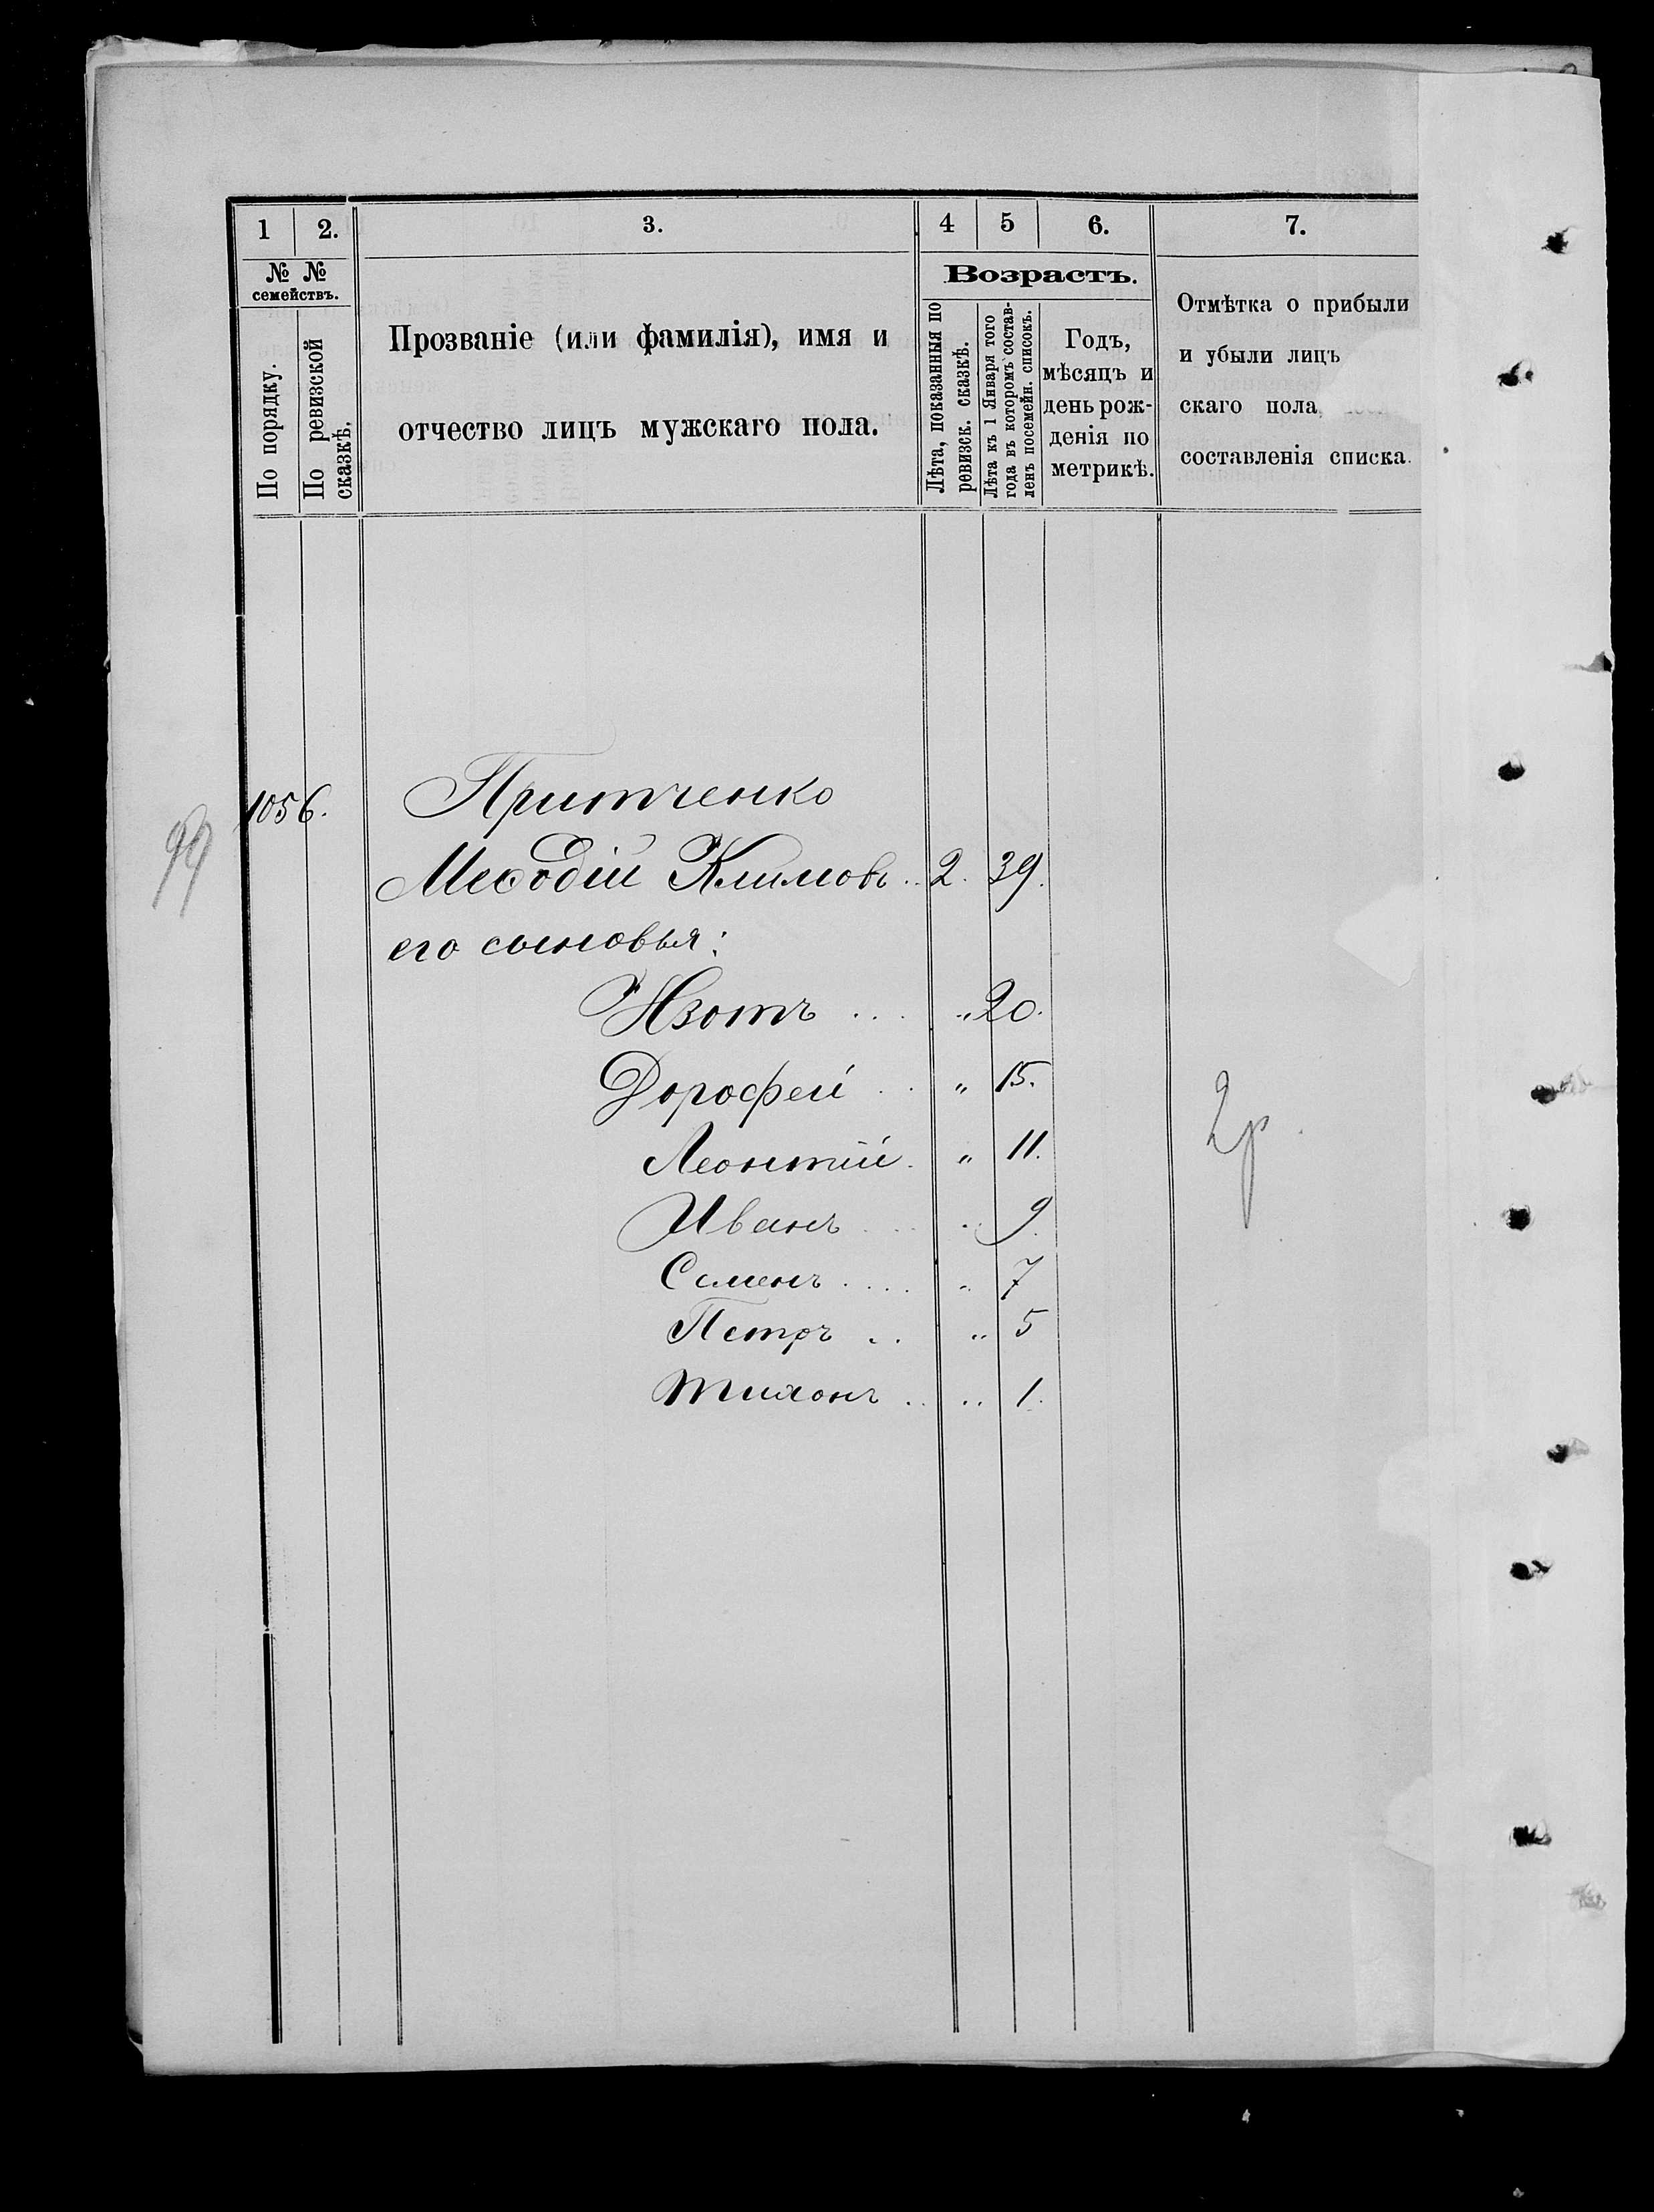 1 2. 3. 4 5 6. 7.
№ №
семействъ.
По порядку.
По ревизской
сказкѣ.
Прозваніе (или фамилія), имя и
отчество лицъ мужскаго пола.
Возрастъ.
Лѣта, показанныя по
ревизск. сказкѣ.
Лѣта къ 1 Января того
года въ которомъ состав-
ленъ посемейн. списокъ.
Годъ,
мѣсяцъ и
день рож-
денія по
метрикѣ.
Отмѣтка о прибыли
и убыли лицъ
скаго пола
составленія списка.
1056. Притченко
99
Меѳодій Климовъ .. 2. 39.
его сыновья:
Изотъ ... „ 20.
Дорофей .. „ 15.
Леонтій . „ 11.
Иванъ ... „ 9.
Семенъ .... „ 7
Петръ .. „ 5
Тихонъ .. „ 1.
2р.